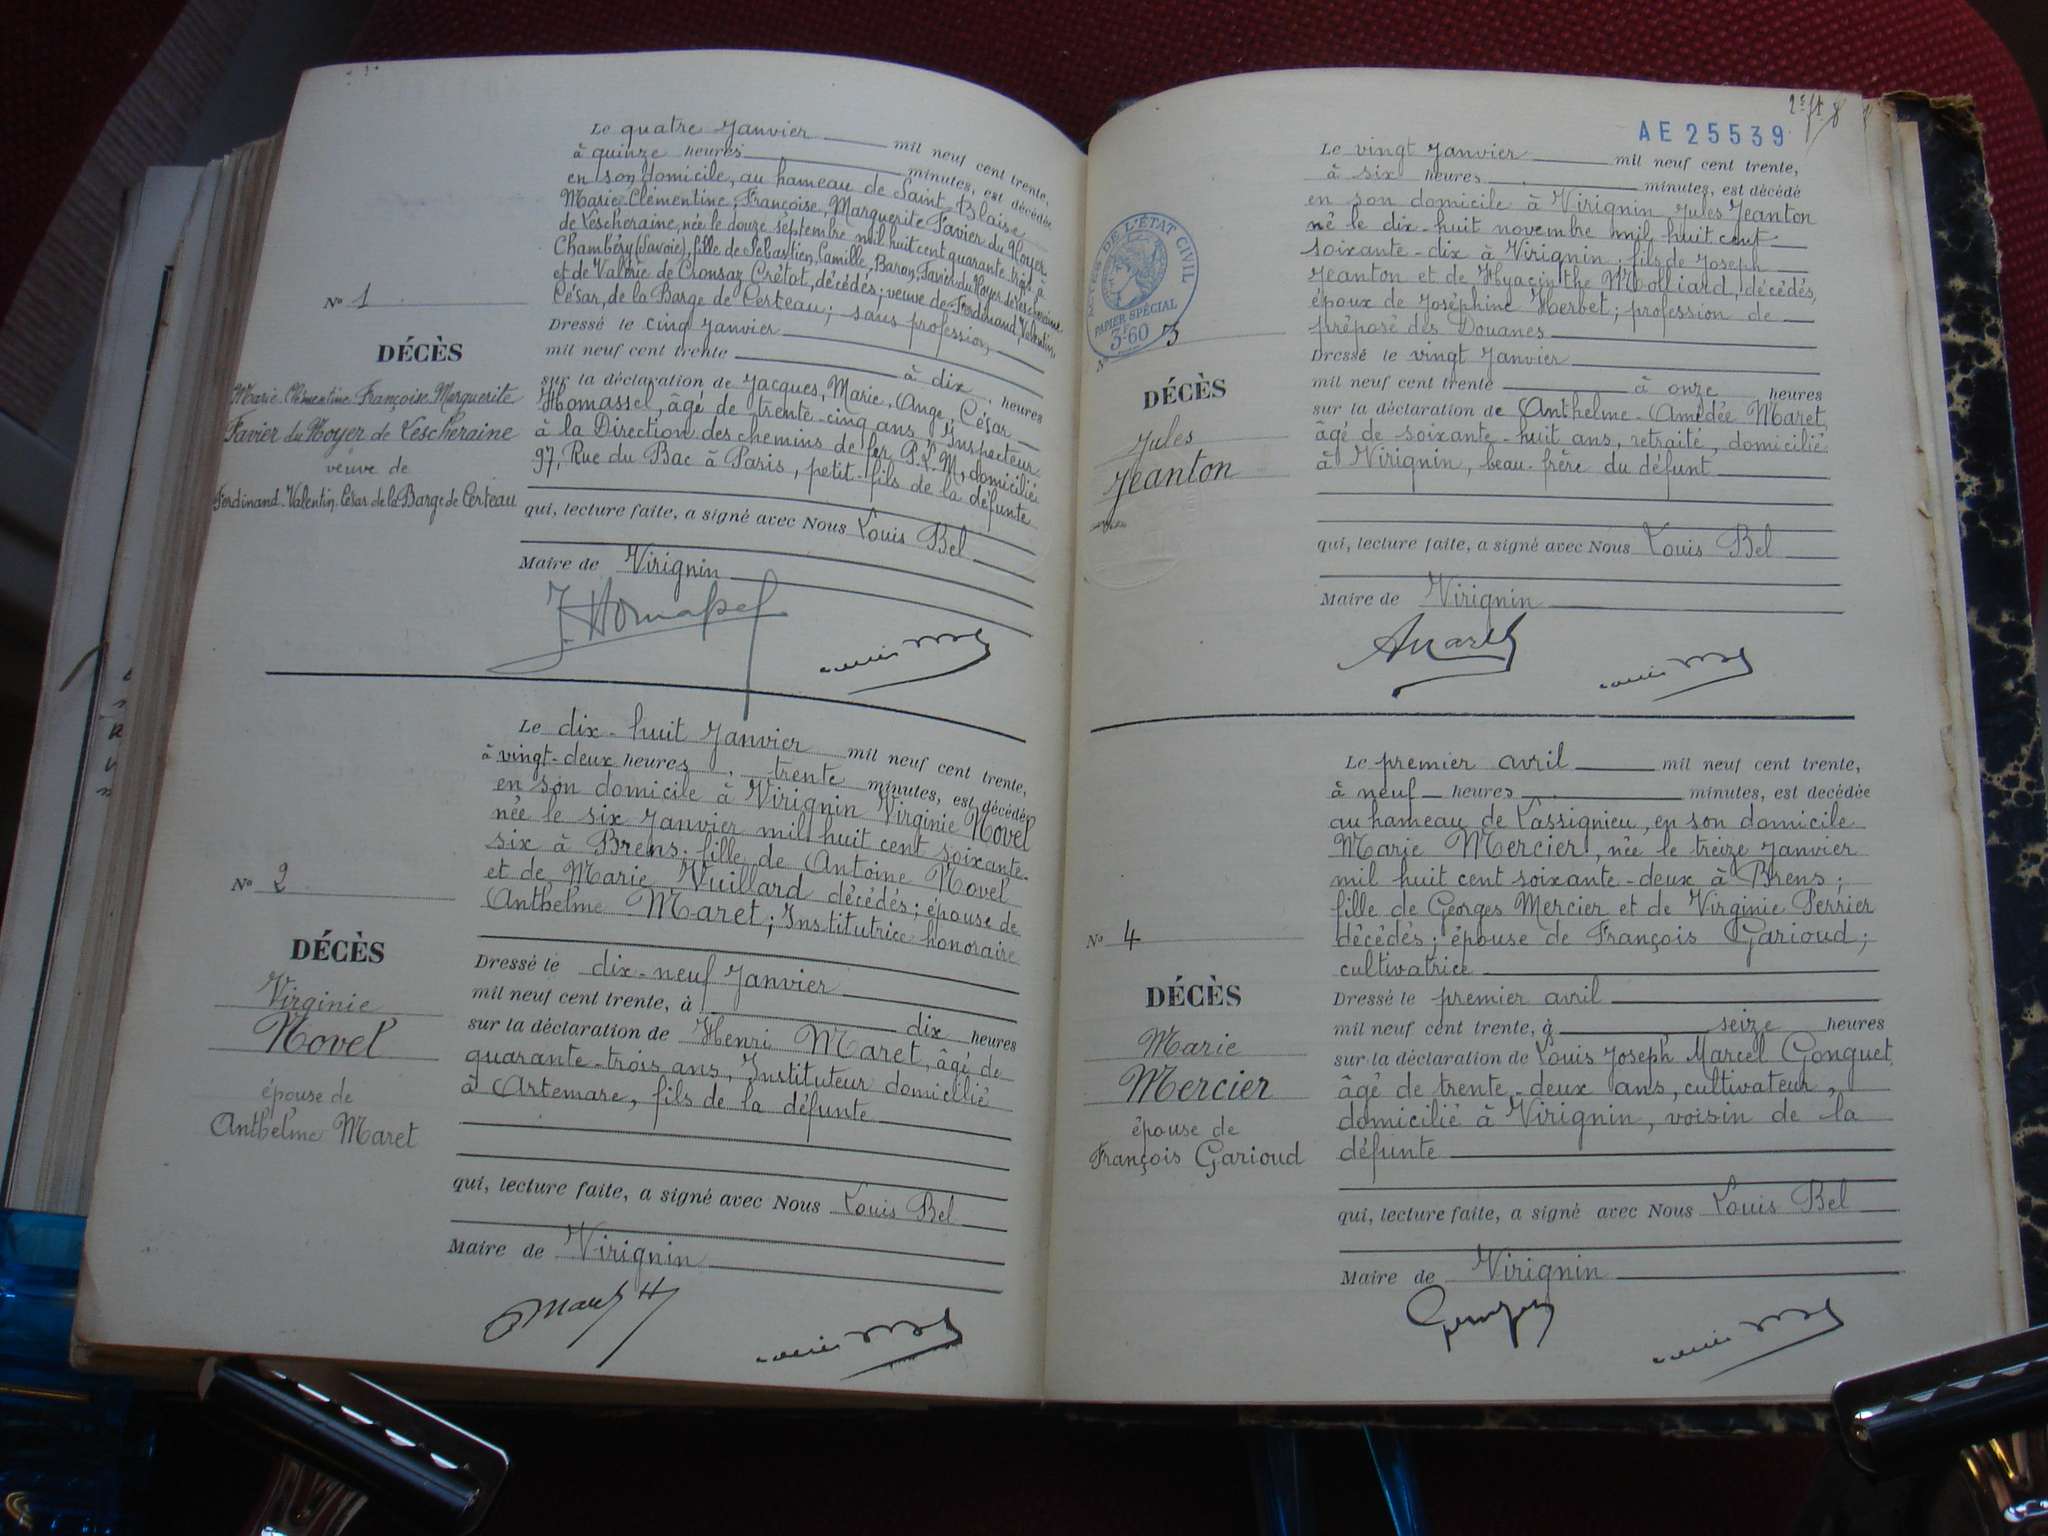 Le quatre Janvier mil neuf cent trente,
à quinze heures minutes, est décédée
en son domicile, au hameau de Saint Blaise
Marie Clémentine, Françoise, Marguerite Favier du Noyer
de Lescheraine, née le douze septembre mil huit cent quarante trois à
Chambéry (Savoie), fille de Sébastien, Camille, Baron, Favier du Noyer de Lescheraine
et de Valérie de Cronsaz Crétot, décédés; veuve de Ferdinand, Valentin,
César, de la Barge de Certeau; sans profession,
Dressé le cinq Janvier
mil neuf cent trente à dix heures
sur la déclaration de Jacques, Marie, Ange, César
Homassel, âgé de trente-cinq ans, Inspecteur
à la Direction des chemins de fer P.L.M, domicilié
97, Rue du Bac à Paris, petit-fils de la défunte
qui, lecture faite, a signé avec Nous Louis Bel
Maire de Virignin
J. Homassel
N° 1
DÉCÈS
Marie Clémentine Françoise Marguerite
Favier du Noyer de Lescheraine
veuve de
Ferdinand-Valentin César de la Barge de Certeau
Le dix-huit Janvier mil neuf cent trente,
à vingt-deux heures, trente minutes, est décédée
en son domicile à Virignin Virginie Novel
née le six Janvier mil huit cent soixante-
six à Brens; fille de Antoine Novel
et de Marie Vuillard décédés; épouse de
Anthelme Maret; Institutrice honoraire
Dressé le dix-neuf Janvier
mil neuf cent trente, à dix heures
sur la déclaration de Henri Maret, âgé de
quarante-trois ans, Instituteur domicilié
à Artemare, fils de la défunte
qui, lecture faite, a signé avec Nous Louis Bel
Maire de Virignin
Maret H
N° 2
DÉCÈS
Virginie
Novel
épouse de
Anthelme Maret
AE 25539
Le vingt Janvier mil neuf cent trente,
à six heures minutes, est décédé
en son domicile à Virignin, Jules Jeanton
né le dix-huit novembre mil huit cent
soixante-dix à Virignin; fils de Joseph
Jeanton et de Hyacinthe Molliard, décédés,
époux de Joséphine Herbet; profession de
préposé des Douanes
Dressé le vingt Janvier
mil neuf cent trente à onze heures
sur la déclaration de Anthelme-Amédée Maret,
âgé de soixante-huit ans, retraité, domicilié
à Virignin, beau-frère du défunt
qui, lecture faite, a signé avec Nous Louis Bel
Maire de Virignin
AMaret
ACTES DE L'ÉTAT CIVIL
PAPIER SPÉCIAL
3F60
N° 3
DÉCÈS
Jules
Jeanton
Le premier avril mil neuf cent trente,
à neuf heures minutes, est decédée
au hameau de Lassignieu, en son domicile
Marie Mercier, née le treize Janvier
mil huit cent soixante-deux à Brens;
fille de Georges Mercier et de Virginie Perrier
décédés; épouse de François Garioud;
cultivatrice
Dressé le premier avril
mil neuf cent trente, à seize heures
sur la déclaration de Louis Joseph Marcel Gonguet
âgé de trente-deux ans, cultivateur,
domicilié à Virignin, voisin de la
défunte
qui, lecture faite, a signé avec Nous Louis Bel
Maire de Virignin
N° 4
DÉCÈS
Marie
Mercier
épouse de
François Garioud